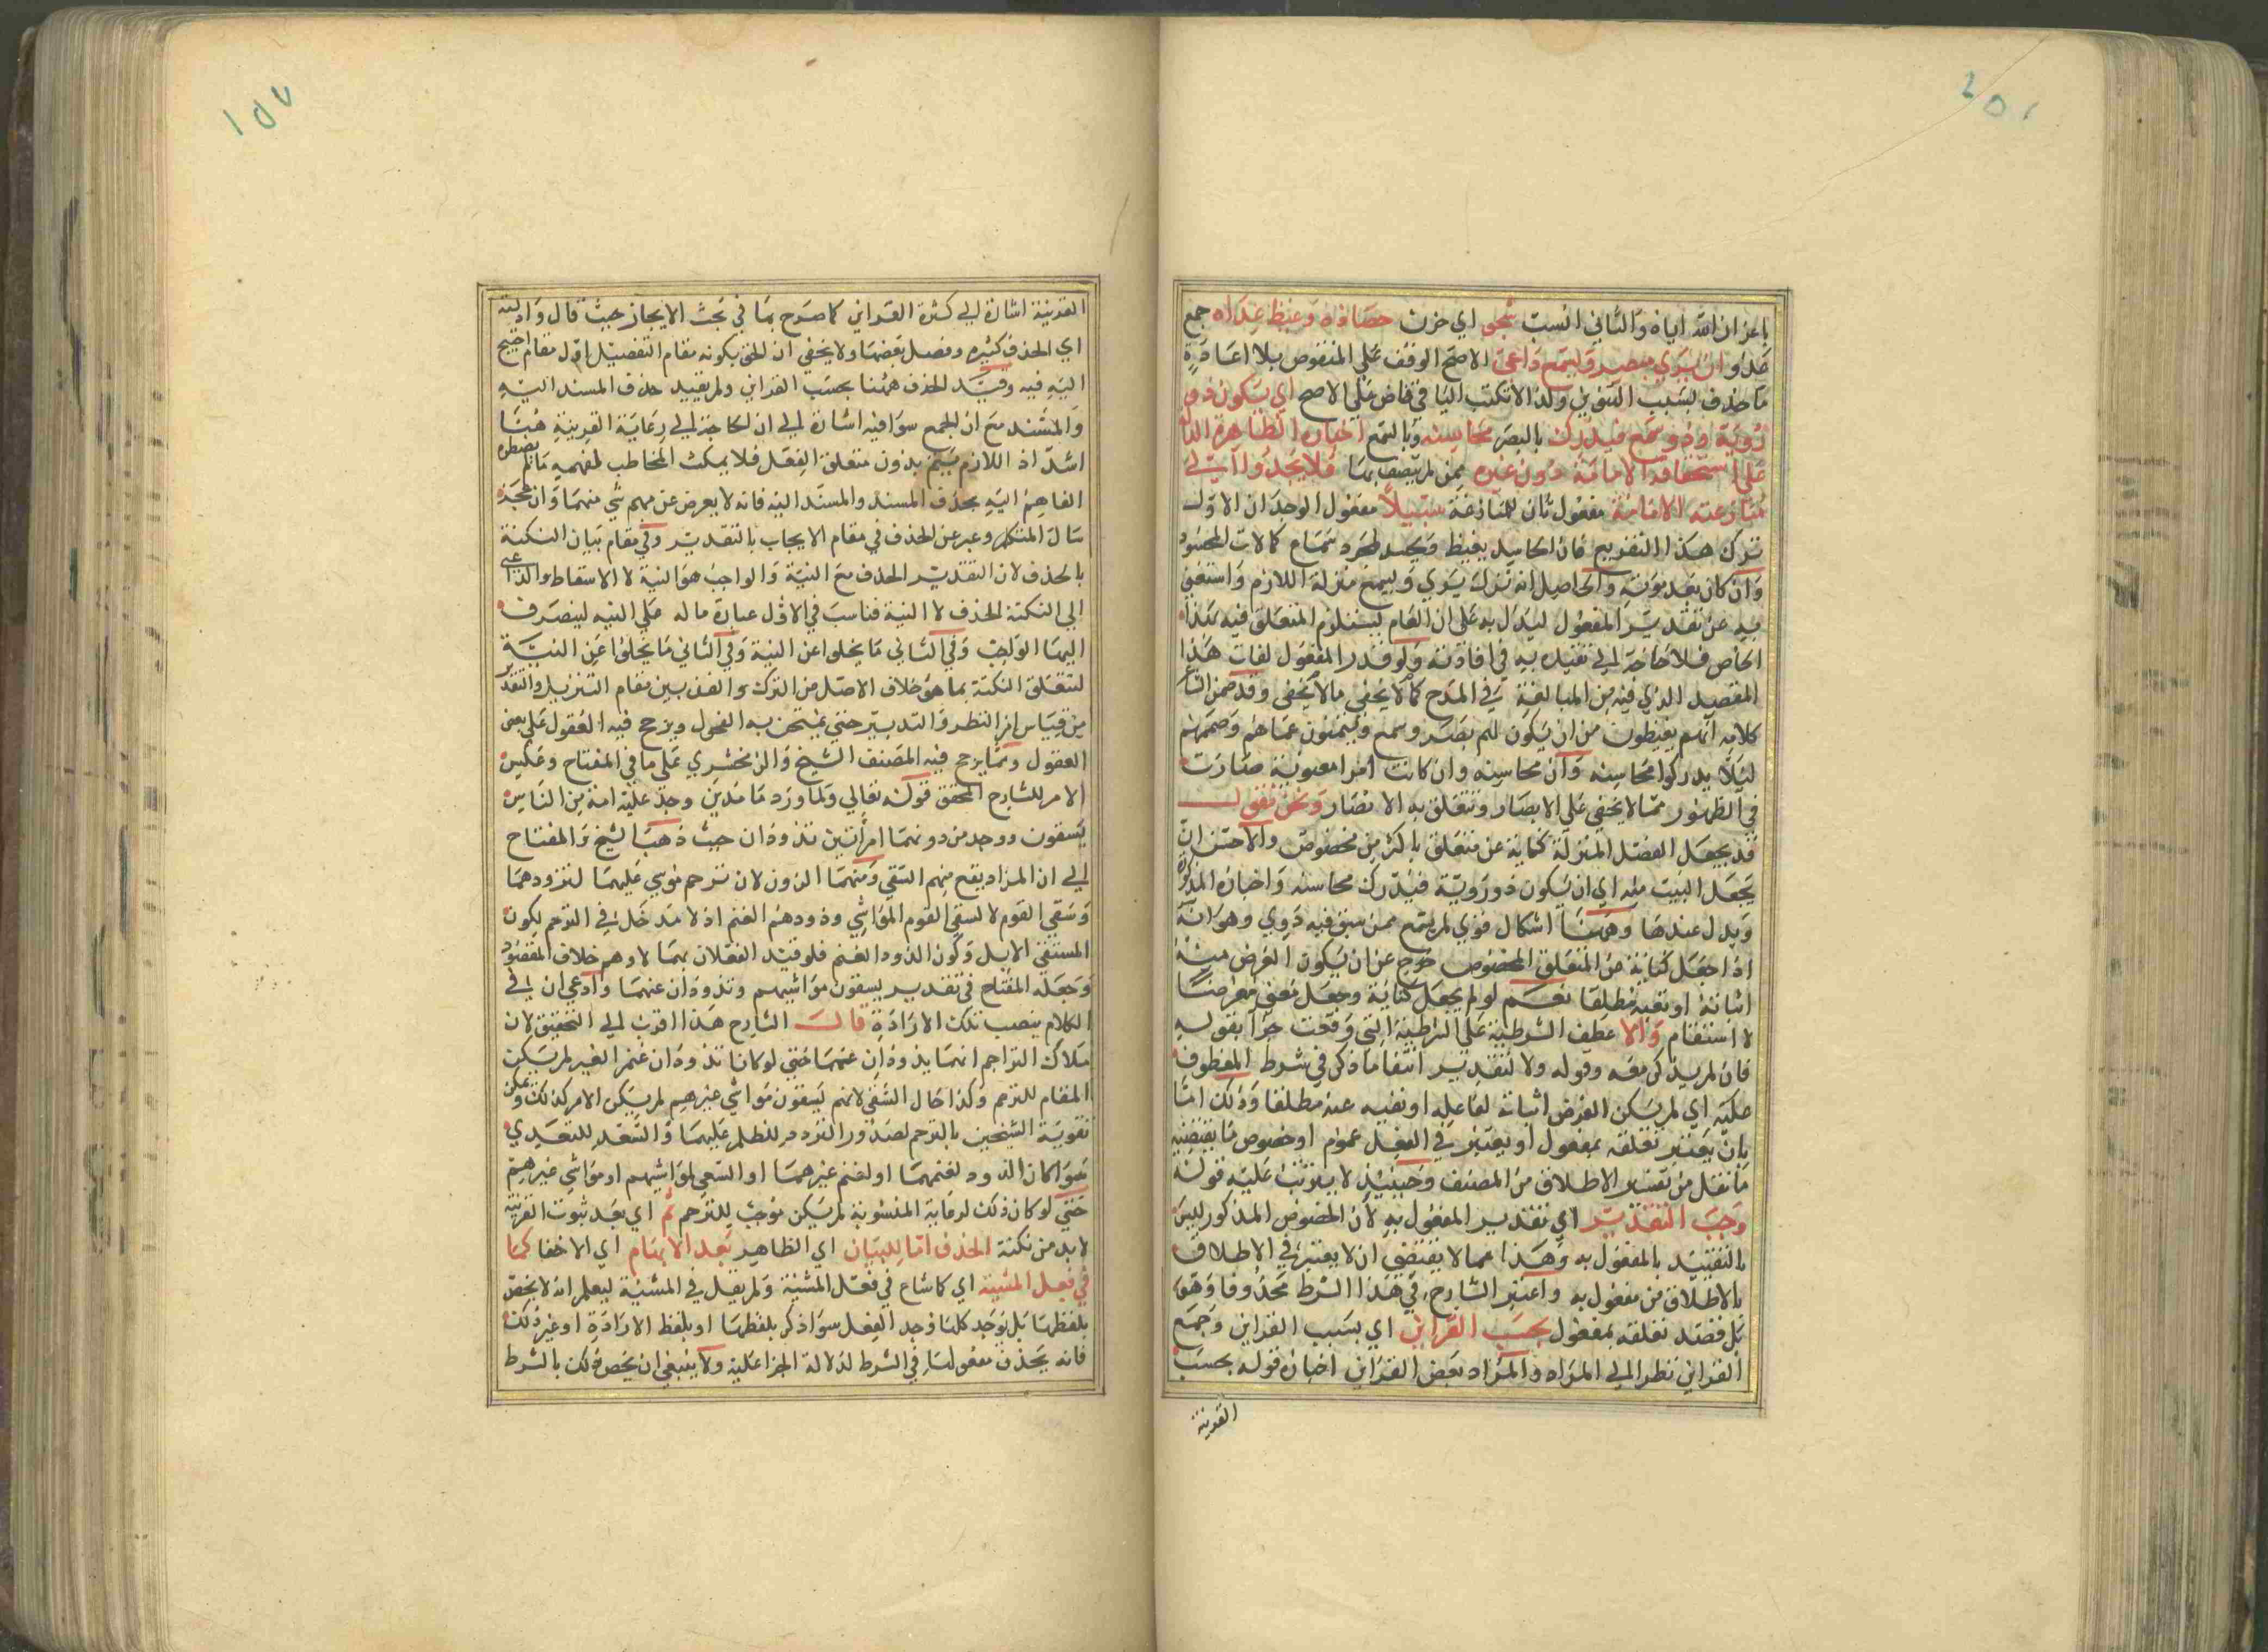 باعزان الله اياه والثاني انسب شجو اي حزن حساده وغيظ عداه جمع
ان يري مبصر ويسمع واعي الاصح الوقف علي المنقوص بلا اعادة
ما حذف بسبب التنوين ولذا لا تكتب اليا في قاض علي الاصح اي يكون ذو
رؤية وذو سمع فيدرك بالبصر محاسنه وبالسمع اخباره الظاهرة الدالة
علي استحقاقه الامامة دون غيره ممن لم يتصف بها فلا يجدوا الي
منازعته الامامة مفعول ثان للمنازعة سبيلا مفعول الوجدان الاول
ترك هذا التفريع فان الحاسد يغيظ ويحسد لمجرد سماع كمالات المحسود
وان كان بعد موته والحاصل انه نزل يري ويسمع منزلة اللازم واستغني
به عن تقدير المفعول ليدل به علي ان العام يستلزم المتعلق فيه بهذا
الخاص فلا حاجة الي تقيده به في افادته ولو قدر المفعول لفات هذا
المقصد الذي فيه من المبالغة في المدح كما لا يخفي ما لا يخفي وقد ضمن الشاعر
كلامه انهم يغيظون من ان يكون لهم بصر وسمع ويتمنون عماهم وصممهم
ليلا يدركوا محاسنه وان محاسنه وان كانت امرا معنوية صارت
في الظهور مما لا يخفي علي الابصار وتتعلق به الابصار ونحن نقول
قد يجعل الفعل المنزلة كناية عن متعلق باكثر من مخصوص والاحسن ان
يجعل البيت منه اي ان يكون ذو رؤية فيدرك محاسنه واخباره المذكورة
ويدل عندها وههنا اشكال قوي لم يسمع ممن سبق فيه دوي وهو انه
اذا جعل كناية عن المتعلق المخصوص خرج عن ان يكون الغرض منه
اثباته او نفيه مطلقا نعم لو لم يجعل كناية وجعل معني معرضا
لا استقام والا عطف الشرطية علي الشرطية التي وقعت جزا بقوله
فان لم يذكر معه وقوله ولا لتقدير انتفا ما ذكر في شرط المعطوف
عليه اي لم يكن الغرض اثباته لفاعله او نفيه عنه مطلقا وذلك اما
بان يعتبر تعلقه بمفعول او يعتبر في الفعل عموم او خصوص ما يقتضيه
ما نقل من تفسير الاطلاق من المصنف وحينيذ لا يترتب عليه قوله
وجب التقدير اي تقدير المفعول به لان المخصوص المذكور ليس
بالتقييد بالمفعول به وهذا عما لا يقتضي ان لا يعتبر في الاطلاق
بالاطلاق من مفعول به واعتبر الشارح في هذا الشرط محذوفا وهو
بل قصد تعلقه بمفعول بحسب القراين اي بسبب القراين وجمع
القراين نظرا الي المراد والمراد بعض القراين اختاره قوله بحسب
القرينة
١٥٧
القرينة اشارة الي كثرة القراين كما صرح بها في بحث الايجاز حيث قال وادلته
اي الحذف كثيرة وفصل بعضها ولا يخفي ان الحق بكونه مقام التفصيل اول مقام احتيج
اليه فيه وقيد الحذف ههنا بحسب القراين ولم يقيد حذف المسند اليه
والمسند مع ان الجمع سوا فيه اشارة الي ان الحاجة الي رعاية القرينة هنا
اشد اذ اللازم يتم بدون متعلق الفعل فلا يمكث المخاطب لفهمه ما لم يضطره
الفاهم اليه بحذف المسند والمسند اليه فانه لا يعرض عن فهم شي منهما وان
سال المتكلم وعبر عن الحذف في مقام الايجاب بالتقدير وفي مقام بيان النكتة
بالحذف لان التقدير الحذف مع النية والواجب هو النية لا الاسقاط والداعي
الي النكتة الحذف لا النية فناسب في الاول عبارة ما له علي النيه لينصرف
اليها الواجب وفي الثاني ما يخلوا عن النية وفي الثاني ما يخلوا عن النية
لتتعلق النكتة بما هو خلاف الاصل من الترك والفرق بين مقام التنزيل والتقدير
من قياس امر النظر والتدبير حتي يمتحن به الفحول ويرجح فيه العقول علي بعض
العقول ومما يرجح فيه المصنف الشيخ والزمخشري علي ما في المفتاح وعكس
الامر للشارح المحقق قوله تعالي ولما ورد ما مدين وجد عليه امة من الناس
يسقون ووجد من دونهما امرأتين تذودان حيث ذهب الشيخ والمفتاح
الي ان المراد يقع منهم السقي ومنهما الذود لان ترحم موسي عليهما لتذودهما
وسقي القوم لا لسقي القوم المواشي وذودهم الغنم اذ لا مدخل في الترحم لكون
المستقي الابل وكون الذود الغنم فلو قيد الفعلان بهما لاوهم خلاف المقصود
وجعله المفتاح في تقدير يسقون مواشيهم وتذودان غنمهما وادعي ان في
الكلام ينصب تلك الارادة قال الشارح هذا اقرب الي التحقيق لان
ملاك التراحم انهما يذودان غنمهما حتي لو كانا تذودان غنم الغير لم يكن
المقام للترحم وكذا حال السقي لانهم يسقون مواشي غيرهم لم يكن الامر كذلك ويمكن
تقوية الشيخين بالترحم لصدور الذود للظلم عليهما والسعد للتعدي
سوا كان الذود لغنمهما او لغنم غيرهما او السقي لمواشيهم او مواشي غيرهم
حتي لو كان ذلك لرعاية المنسوبة لم يكن موجب للترحم ثم اي بعد ثبوت القرينة
لا بد من نكتة الحذف اما للبيان اي الظاهر بعد الابهام اي الاخفا كما
في فعل المشية اي كما شاع في فعل المشية ولم يقل في المشية ليعلم انه لا يخص
بلفظها بل يوجد كلما وجد الفعل سوا ذكر بلفظها او بلفظ الارادة او غير ذلك
فانه يحذف مفعولها في الشرط لدلالة الجزا عليه ولا ينبغي ان يخص ذلك بالشرط